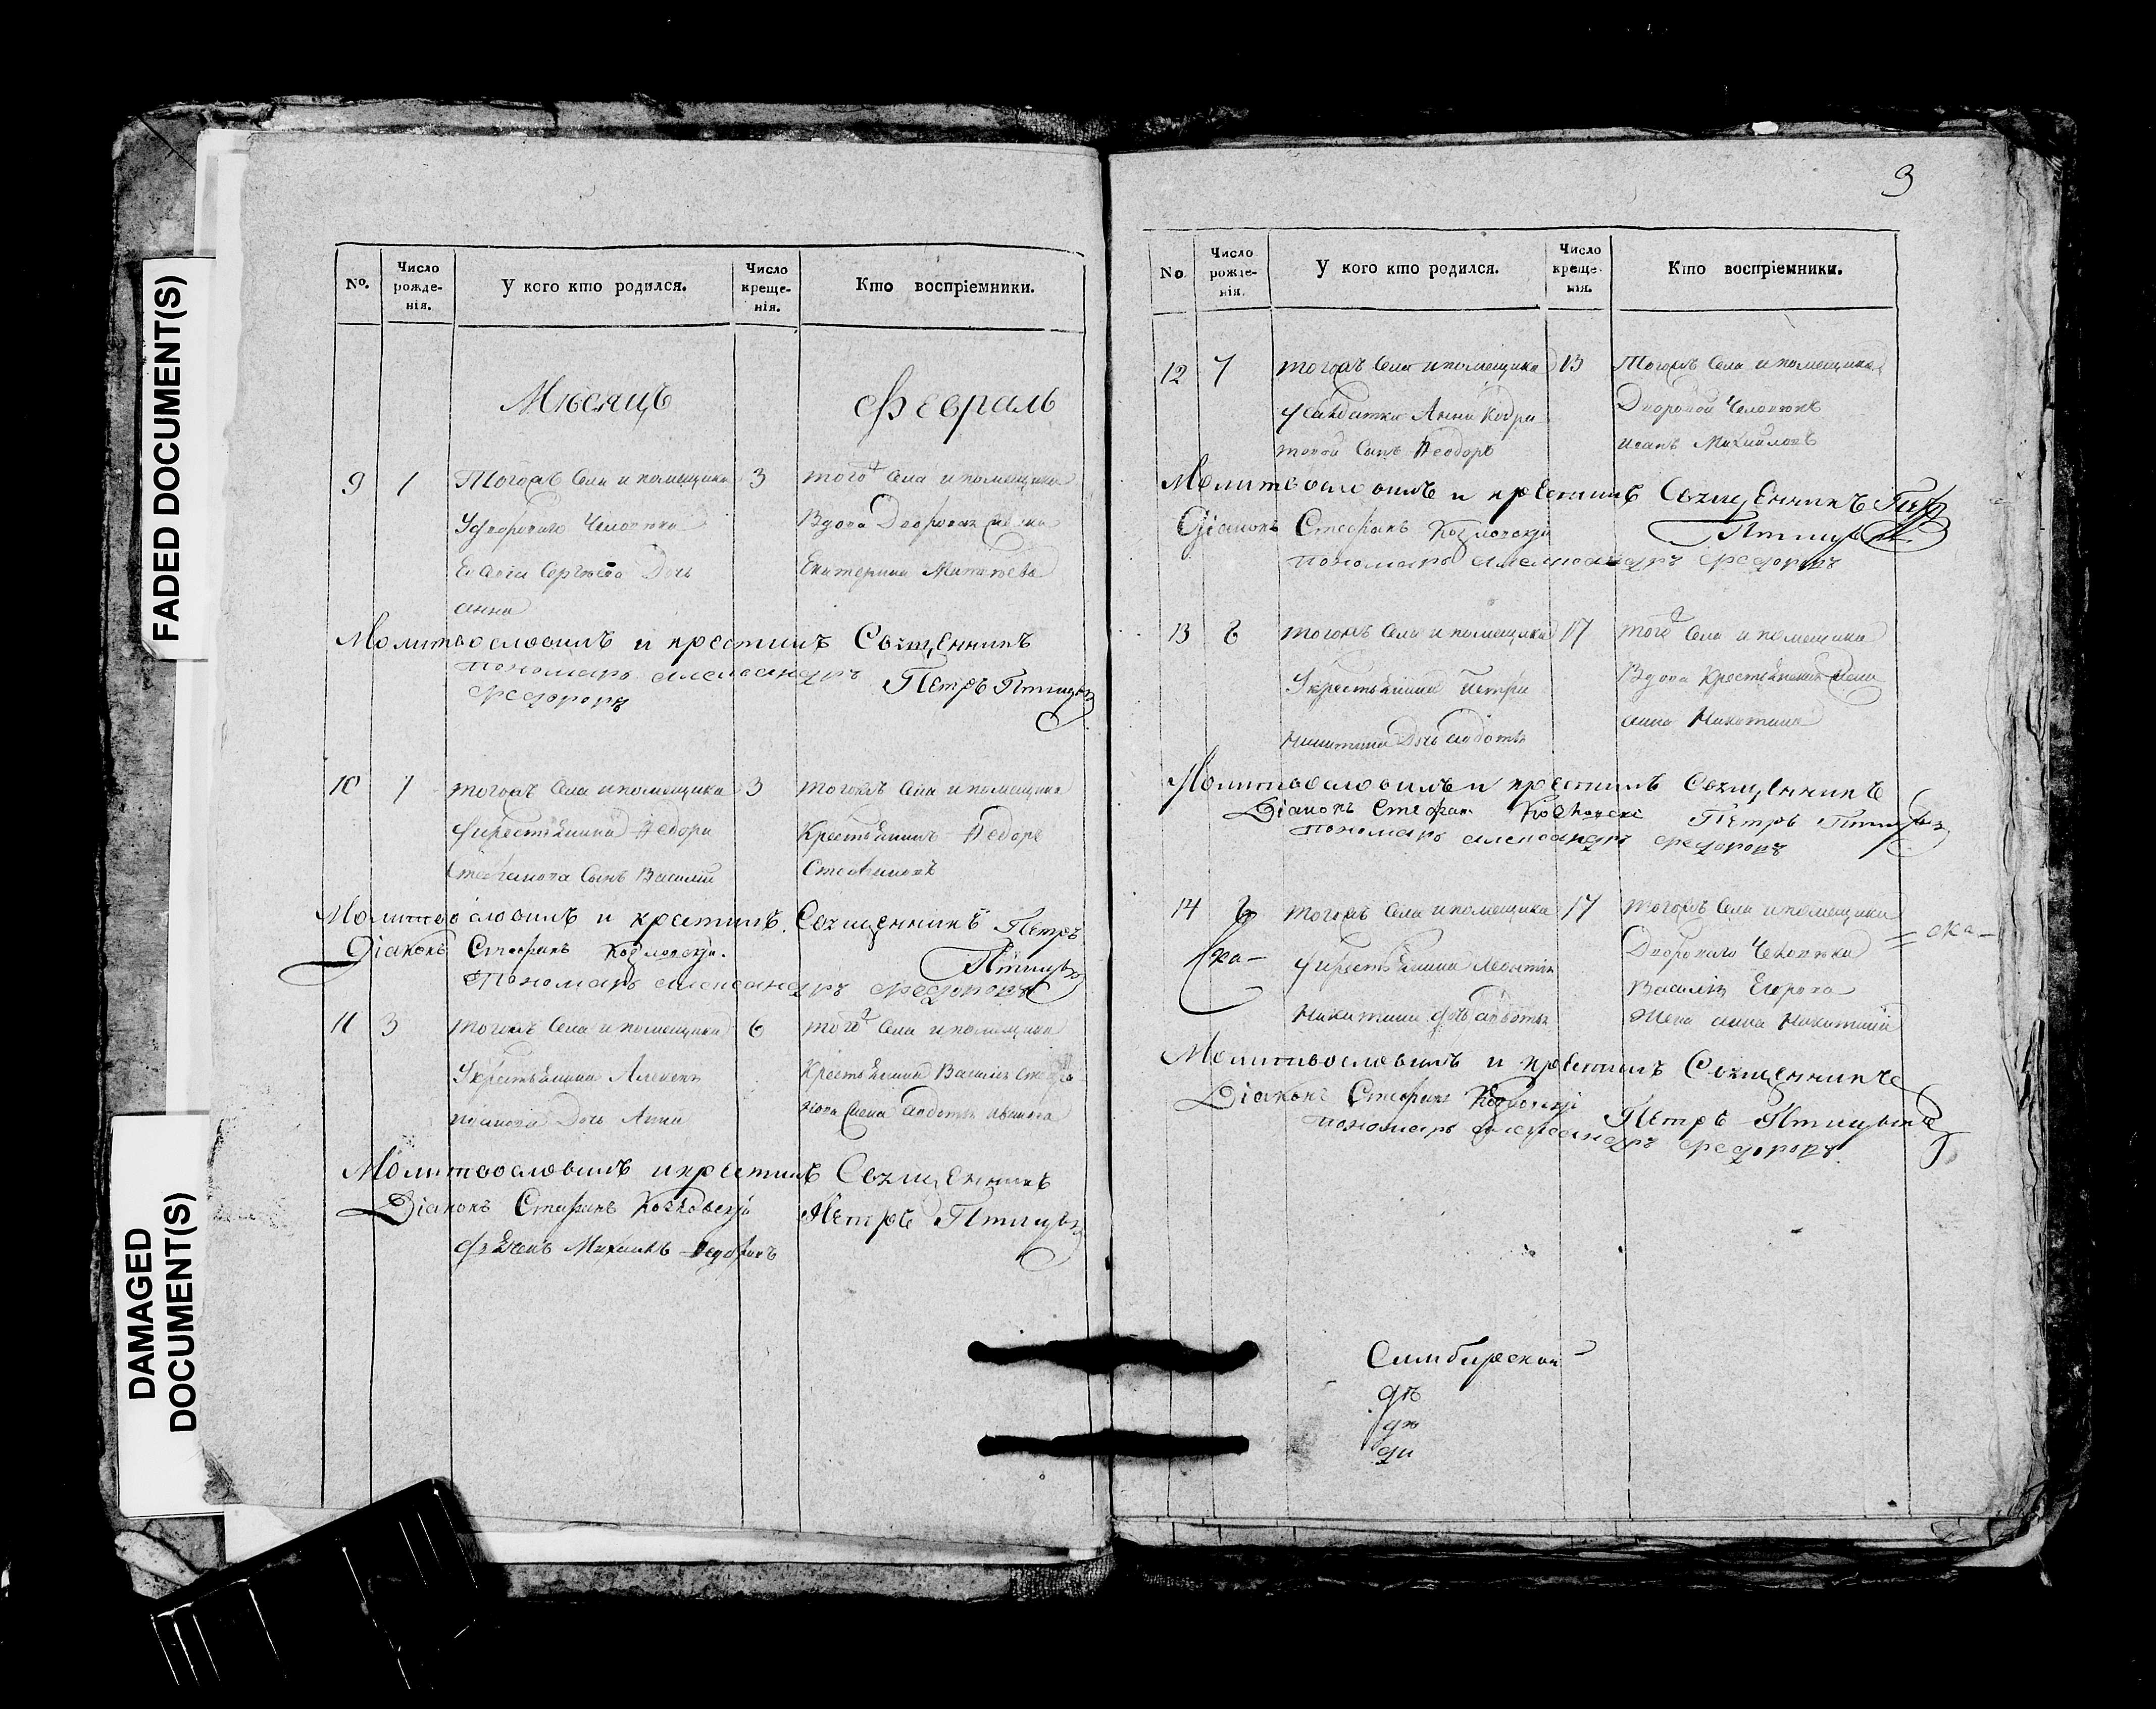 FADED DOCUMENT(S)
DAMAGED
DOCUMENT(S)
№.
Число рожде-нія.
У кого кто родился.
Число креще-нія.
Кто воспріемники.
Мѣсяцъ Февраль
9 1 Тогожъ Села и помещика 3 того ж Села и помещика
Удворового Человека Вдова Дворовая
Сергѣева Дочь Екатерина Матвѣева
анна
Молитвословилъ и крестилъ Священникъ
пономарь александръ Петръ Птицынъ
Федоровъ
10 1 тогожъ Села и помещика 3 тогожъ Села и помещика
Укрестьянина Федора Крестьянинъ Федоръ
Стефанова Сынъ Василий Стефановъ
Молитвословилъ и крестилъ Священникъ Петръ
Діаконъ Стефанъ Козловскій Птицынъ
Пономарь александръ Федоровъ
11 3 тогожъ Села и помещика 6 того ж Села и помещика
Укрестьянина Алексея Крестьянина Василья
иванова Дочь Анна Жена авдотья иванова
Молитвословилъ и крестилъ Священникъ
Діаконъ Стефанъ Козловскій Петръ Птицынъ
Михаилъ Федоровъ
3
No.
Число рожде-нія.
У кого кто родился.
Число креще-нія.
Кто воспріемники.
12 7 тогожъ Села и помещика 13 Тогожъ Села и помещика
Усолдатки Анны Дворовой Человекъ
Сынъ Феодоръ иванъ Михайловъ
Молитвословилъ и крестилъ Священникъ Петръ
Діаконъ Стефанъ Козловскій Птицынъ
пономарь александръ Федоровъ
13 6 тогожъ Села и помещика 17 того ж Села и помещика
Укрестьянина Петра Вдова Крестьянская Жена
Никитина Дочь авдотья анна Никитина
Молитвословилъ и крестилъ Священникъ
Діаконъ Стефан Козловскі Петръ Птицынъ
пономарь александръ Федоровъ
14 тогожъ Села и помещика 17 тогожъ Села и помещика
Укрестьянина Леонтья Дворового Человека
Никитина дочь авдотья Василья Егорова
Жена анна Никитина
ска-
Молитвословилъ и крестилъ Священникъ
Діаконъ Стефанъ Козловскі Петръ Птицынъ
пономарь александръ Федоровъ
Симбирской